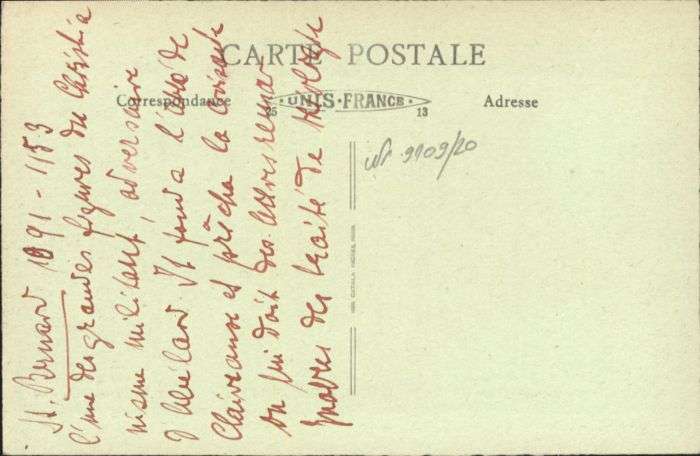 CARTE POSTALE
Correspondance
UNIS-FRANCE
25
13
Adresse
N° 9109/20
St. Bernard 1091-1153
l'une des grandes figures du Christia
nisme militant, adversaire
d'Abélard. Il fonda l'abb de
Clairvaux et prêcha la croisade
on lui doit des lettres remar
quables des traités de théologie